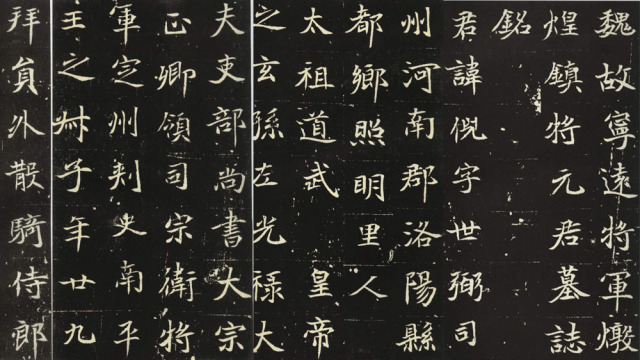 魏故寧遠将軍燉
煌鎮将元君墓誌
銘
君諱倪字世弼司
州河南郡洛陽縣
都鄉照明里人
太祖道武 皇帝
之玄孫左光祿大
夫吏部尚書大宗
正卿領司宗衛将
軍定州刺史南平
王之叔子年廿九
拜員外散騎侍郎